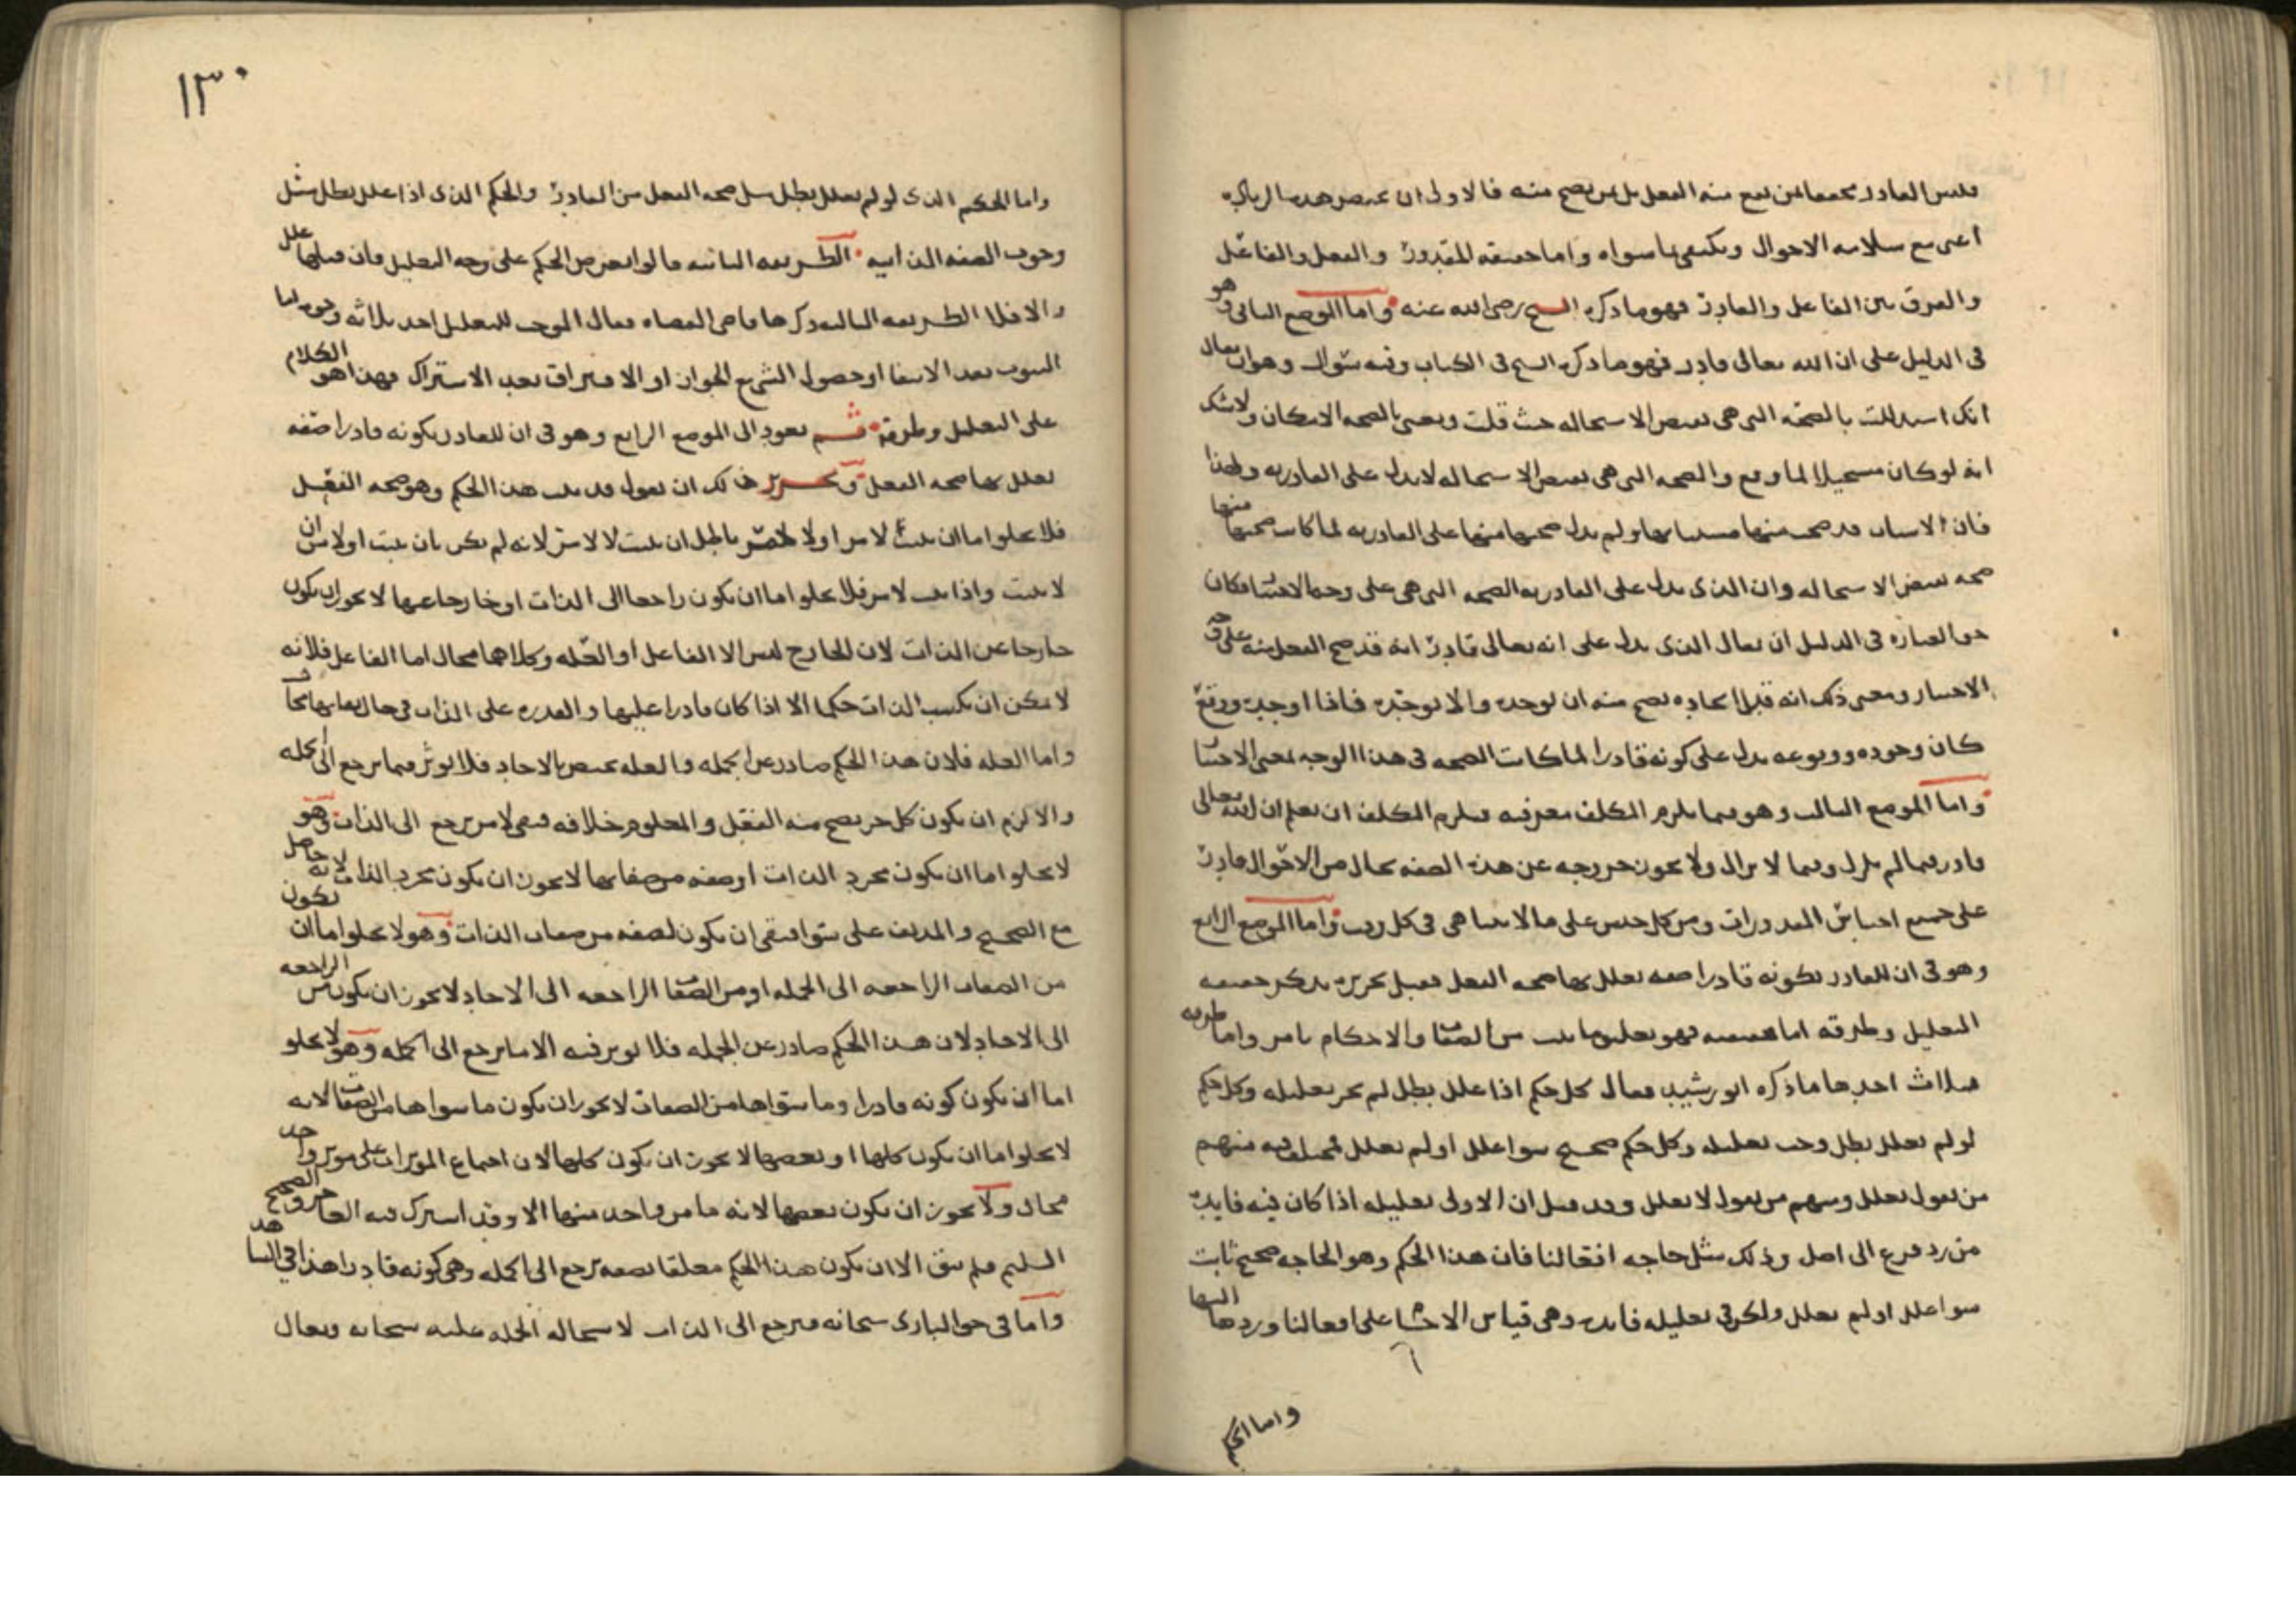 فليس القادر مخصصا بمن يقع منه الفعل بل بمن يصح منه فالاولى ان يختصر هذه الزيادة
اعني مع سلامة الاحوال ويكتفى بما سواه واما حقيقة المقدور والفعل والفاعل
والفرق بين الفاعل والقادر فهو ما ذكره الشيخ رضي الله عنه واما الموضع الثاني وهو
في الدليل على ان الله تعالى قادر فهو ما ذكره الشيخ في الكتاب وفيه سؤال وهو ان يقال
انك استدللت بالصحة التي هي نقيض الاستحالة حيث قلت ومعنى الصحة الامكان ولا شك
انه لو كان مستحيلا لما وقع والصحة التي هي نقيض الاستحالة لا تدل على القادرية ولهذا
فان الاسباب قد صحت منها مسبباتها ولم تدل صحتها منها على القادرية لما كانت صحتها منها
صحة نقيض الاستحالة وان الذي يدل على القادرية الصحة التي هي على وجه الاختيار فكان
حق العبارة في الدليل ان يقال الذي يدل على انه تعالى قادر انه قد صح الفعل منه على وجه
الاختيار ومعنى ذلك انه قبل ايجاده يصح منه ان يوجده والا يوجده فاذا اوجده ووقع
كان وجوده ووقوعه يدل على كونه قادرا لما كانت الصحة في هذا الوجه بمعنى الاختيار
واما الموضع الثالث وهو فيما يلزم المكلف معرفته فيلزم المكلف ان يعلم ان الله تعالى
قادر فيما لم يزل وفيما لا يزال ولا يجوز خروجه عن هذه الصفة بحال من الاحوال قادر
على جميع اجناس المقدورات ومن كل جنس على ما لا يتناهى في كل وقت واما الموضع الرابع
وهو في ان للقادر بكونه قادرا صفة تعلل بها صحة الفعل فقبل تحريره نذكر حقيقة
التعليل وطرقه اما حقيقته فهو تعليق ما ثبت من الصفات والاحكام بامر واما طرقه
فثلاث احدها ما ذكره ابو رشيد فقال كل حكم اذا علل بطل لم يجز تعليله وكل حكم
لو لم يعلل بطل وجب تعليله وكل حكم صحيح سوا علل او لم يعلل مختلف فيه منهم
من يقول يعلل ومنهم من يقول لا يعلل وقد قيل ان الاولى تعليله اذا كان فيه فايدة
من رد فرع الى اصل وذلك مثل حاجة افعالنا فان هذا الحكم وهو الحاجة صحيح ثابت
سوا علل او لم يعلل ولكن في تعليله فايدة وهي قياس الاجسام على افعالنا وردها اليها
واما الحكم
١٣٠
واما الحكم الذي لو لم يعلل بطل مثل صحة الفعل من القادر والحكم الذي اذا علل بطل مثل
وجوب الصفة الذاتية الطريقة الثانية قالوا يعرض الحكم على وجه التعليل فان قبلها علل
والا فلا الطريقة الثالثة ذكرها قاضي القضاة فقال الموجب للتعليل احد ثلاثة وجوه اما
الثبوت بعد الانتفا او حصول الشي مع الجواز او الافتراق بعد الاشتراك فهذا هو الكلام
على التعليل وطرقه ثم نعود الى الموضع الرابع وهو في ان للقادر بكونه قادرا صفة
تعلل بها صحة الفعل وتحرير ذلك ان نقول قد ثبت هذا الحكم وهو صحة الفعل
فلا يخلو اما ان ثبت لامر او لا لامر باطل ان يثبت لا لامر لانه لم يكن بان يثبت اولى من ان
لا يثبت واذا ثبت لامر فلا يخلو اما ان يكون راجعا الى الذات او خارجا عنها لا يجوز ان يكون
خارجا عن الذات لان الخارج ليس الا الفاعل او العلة وكلاهما محال اما الفاعل فلانه
لا يمكن ان يكسب الذات حكما الا اذا كان قادرا عليها والقدرة على الذات في حال بقايها محال
واما العلة فلان هذا الحكم صادر عن الجملة والعلة تختص بالاحاد فلا يوثر فيما يرجع الى الجملة
والا لزم ان يكون كل جز يصح منه الفعل والمعلوم خلافه فبقي لامر يرجع الى الذات وهو
لا يخلو اما ان يكون مجرد الذات او صفة من صفاتها لا يجوز ان يكون مجرد الذات لانه حاصل
مع الصحيح والمدنف على سوا فبقي ان يكون لصفة من صفات الذات وهو لا يخلو اما ان يكون
من الصفات الراجعة الى الجملة او من الصفات الراجعة الى الاحاد لا يجوز ان يكون من الراجعة
الى الاحاد لان هذا الحكم صادر عن الجملة فلا يوثر فيه الا ما يرجع الى الجملة وهو لا يخلو
اما ان يكون كونه قادرا وما سواها من الصفات لا يجوز ان يكون ما سواها من الصفات لانه
لا يخلو اما ان يكون كلها او بعضها لا يجوز ان يكون كلها لان اجتماع الموثرات على موثر واحد
محال ولا يجوز ان يكون بعضها لانه ما من واحد منها الا وقد اشترك فيه العاجز والصحيح
السليم فلم يبق الا ان يكون هذا الحكم معلقا بصفة ترجع الى الجملة وهي كونه قادرا هذا في الشاهد
واما في حق الباري سبحانه فيرجع الى الذات لاستحالة الجملة عليه سبحانه وتعالى